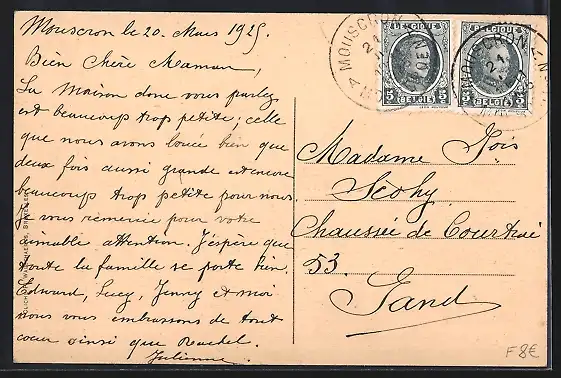 Mouscron le 20. Mars 1925.
Bien Chère Maman,
La Maison dont vous parlez
est beaucoup trop petite, celle
que nous avons louée bien que
deux fois aussi grande est encore
beaucoup trop petite pour nous.
Je vous remercie pour votre
aimable attention. J'éspère que
toute la famille se porte bien.
Edward, Lucy, Jenny et moi
nous vous embrassons de tout
cœur ainsi que Rachel.
Julienne
MOUSCRON
21
BELGIQUE
5 BELGIË 5
BELGIQUE
5 BELGIË 5
MOUSCRON
21
Madame
Scohy
Chaussée de Courtrai
53.
Gand
F 8€